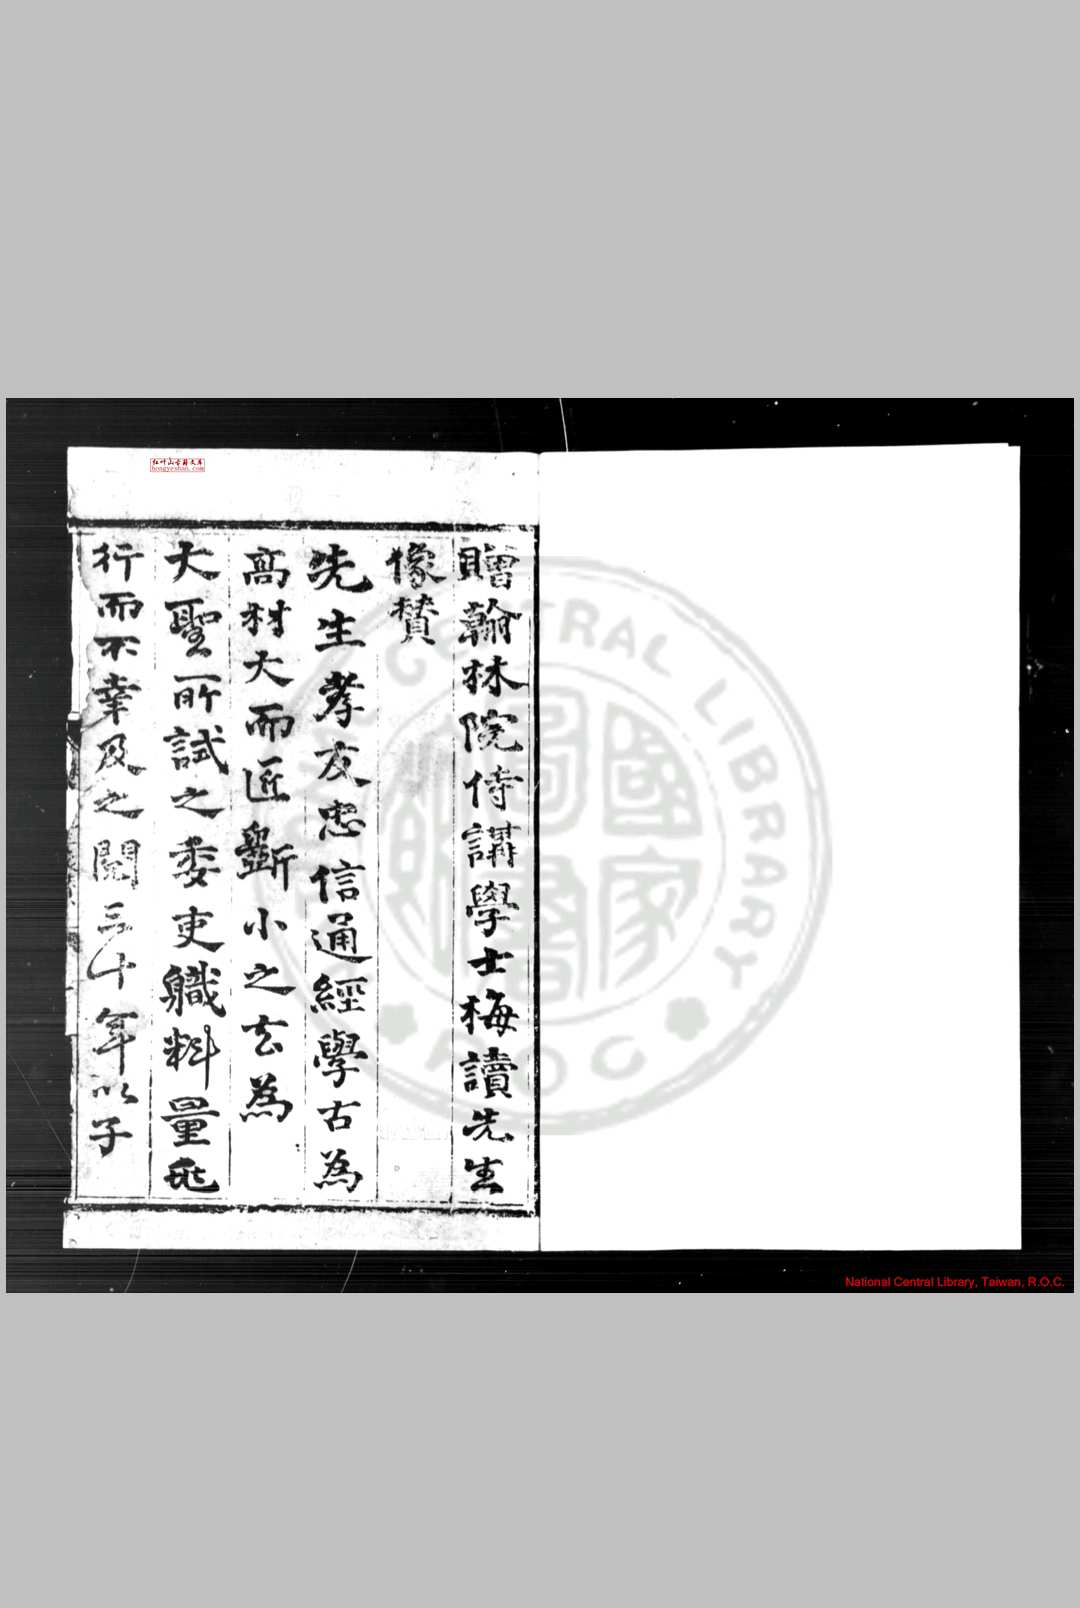 贈翰林院侍講學士梅讀先生
像贊
先生孝友忠信通經學古為
高材大而匠斲小之玄為
大聖所試之委吏職料量
行而不幸及之閱三十年以子
红叶山古籍文库
hongyeshan.com
CENTRAL LIBRARY
ROC
國家圖書館
National Central Library, Taiwan, R.O.C.